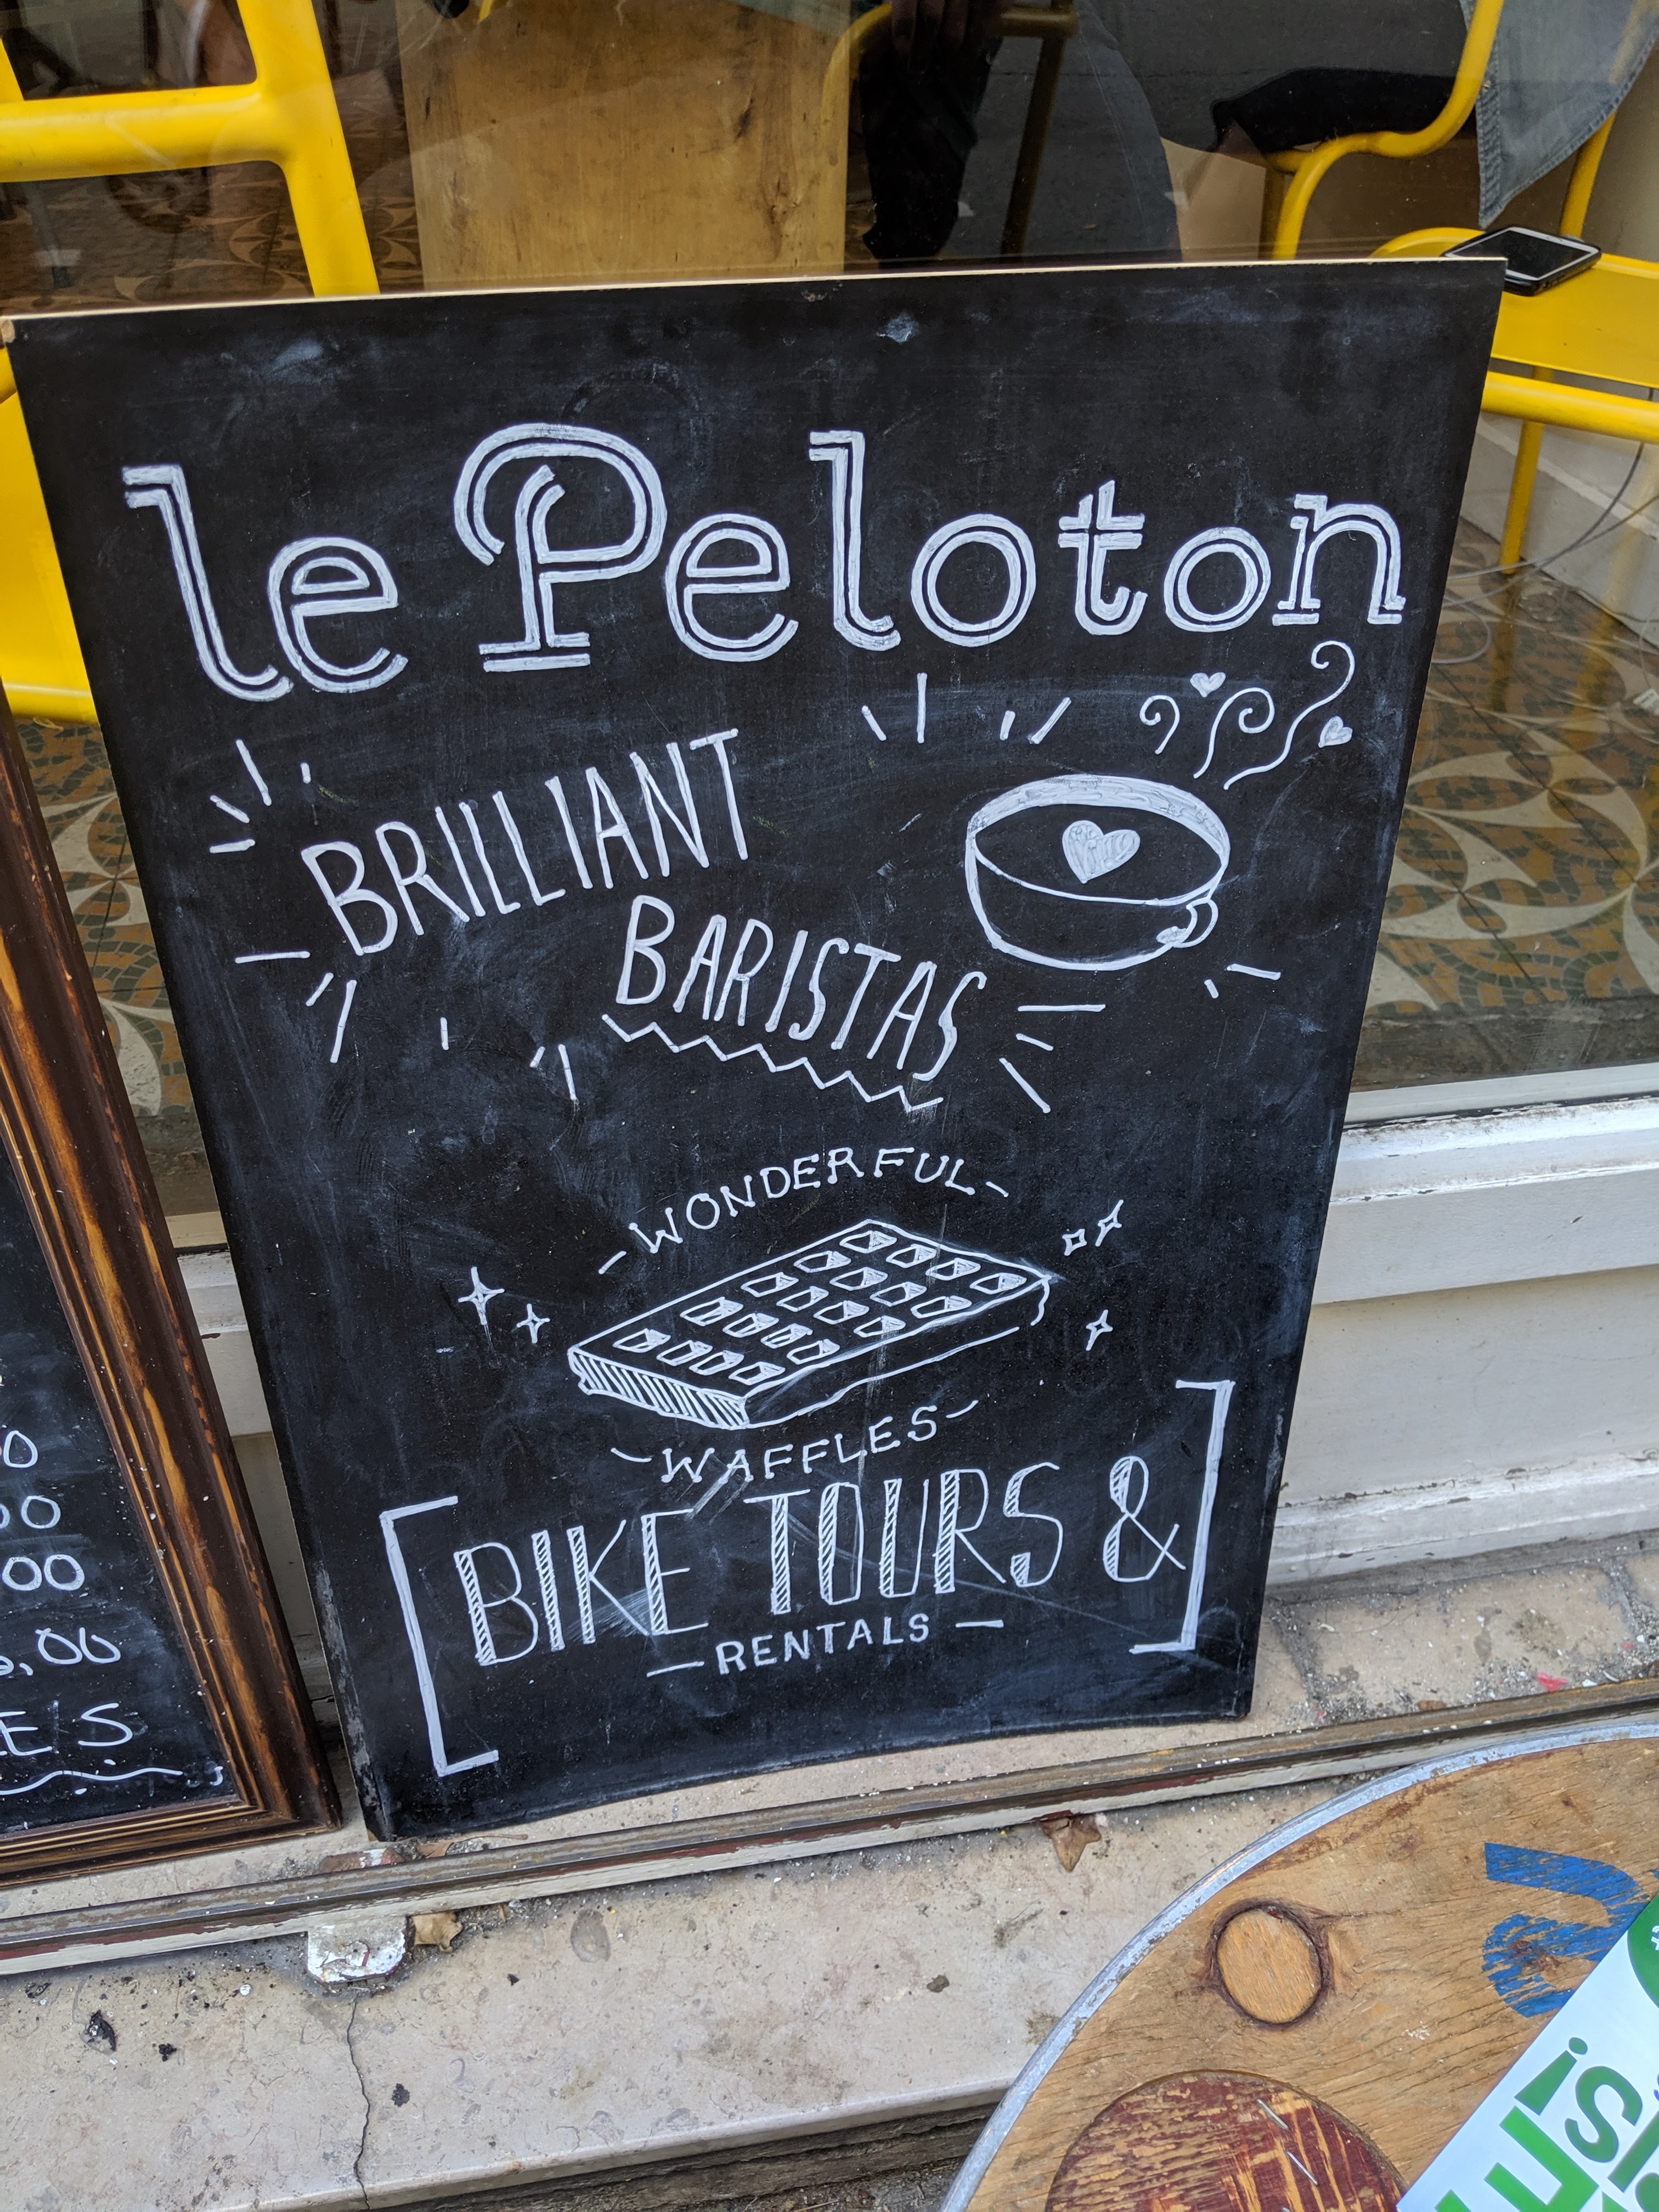 le Peloton
BRILLIANT
BARISTAS
WONDERFUL
WAFFLES
BIKE TOURS &
RENTALS